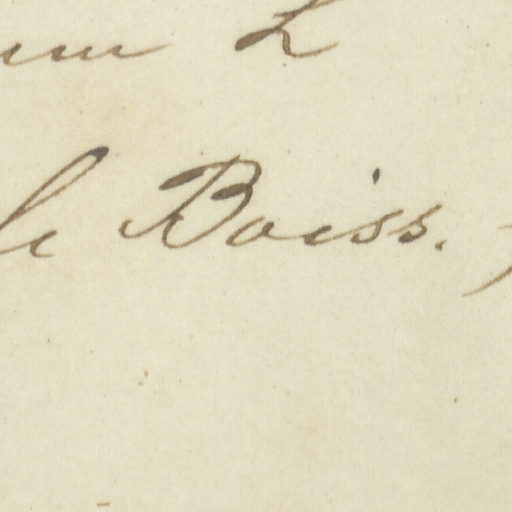 um L
le Boiss.